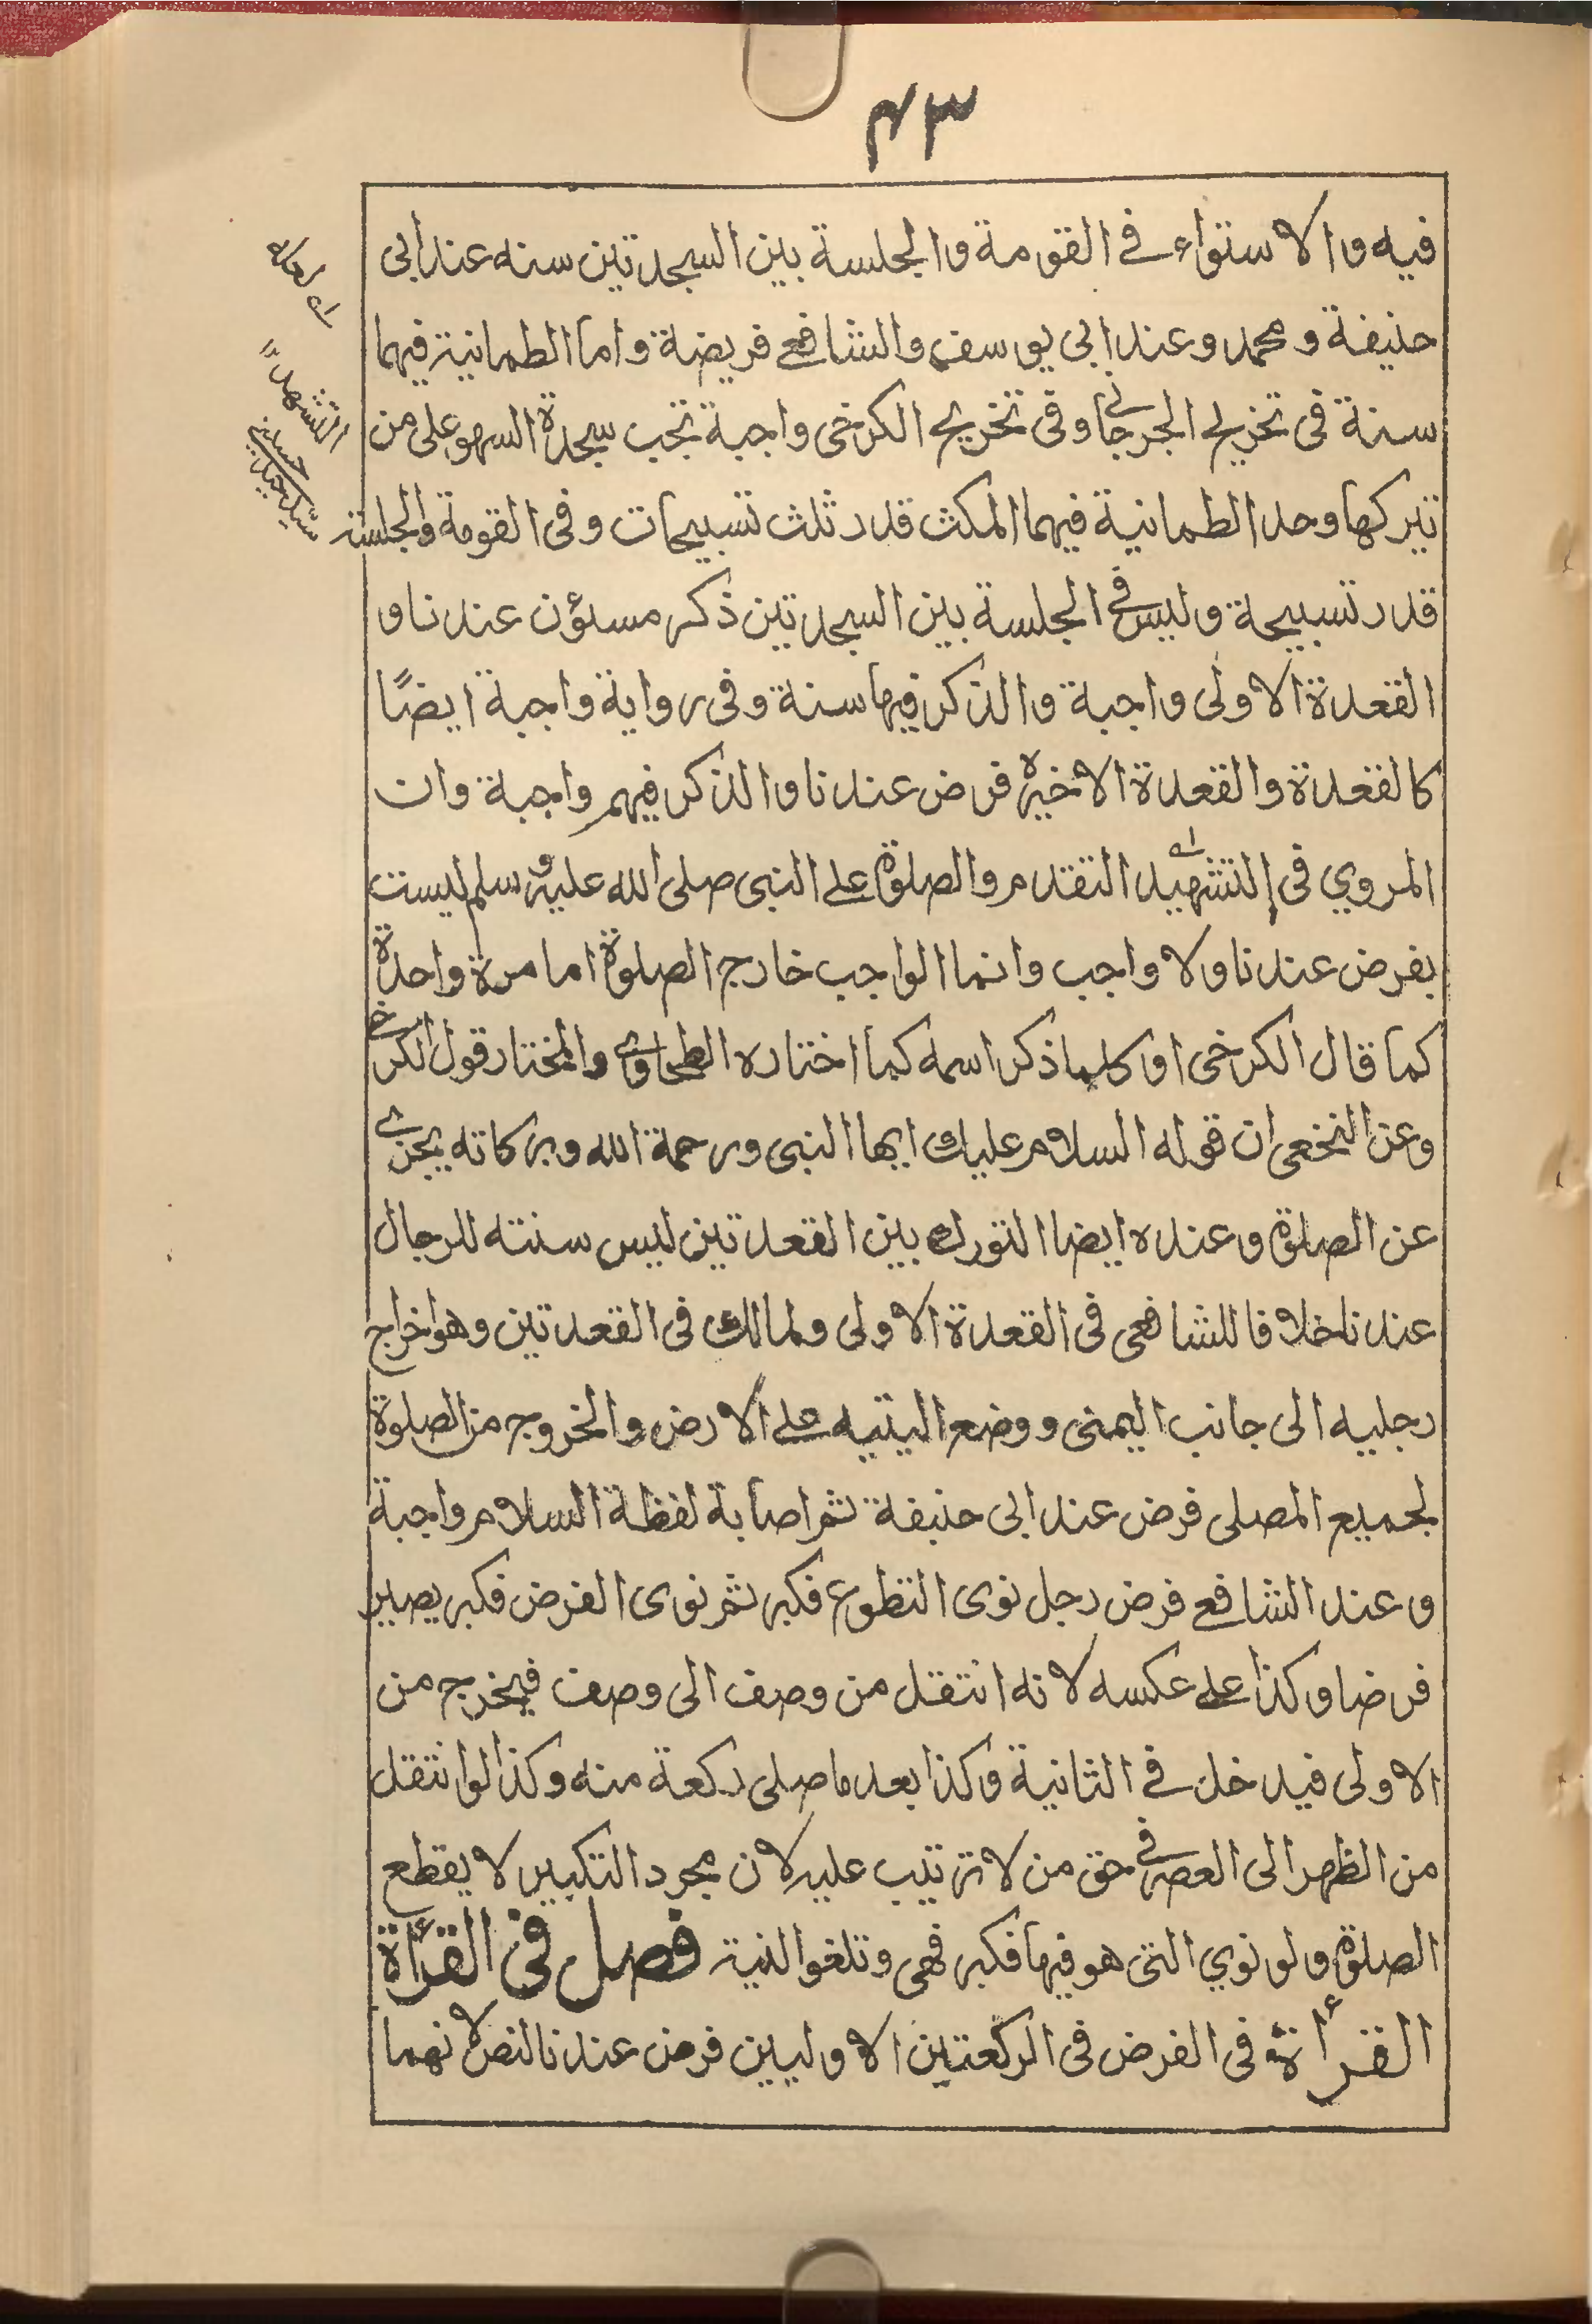 ٤٣
فيه والاستواء فے القومة والجلسة بين السجدتين سنه عند ابى
حنيفة ومحمد وعند ابى يوسف والشافعے فريضة واما الطمانية فيهما
سنة فى تخريج الجرجانے وفى تخريج الكرخى واجبة تجب سجدة السهو على من
تيركها وحد الطمانية فيهما المكث قدر ثلث تسبيحات وفى القومة والجلسة
قدر تسبيحة وليس فے الجلسة بين السجدتين ذكر مسئؤن عندنا و
القعدة الاولى واجبة والذكر فيها سنة وفى رواية واجبة ايضًا
كالقعدة والقعدة الاخيرة فرض عندنا والذكر فيهم واجبة وان
المروي فى التشهيد التقدم والصلوة علے النبى صلى الله عليه وسلم ليست
بفرض عندنا ولا واجب وانما الواجب خارج الصلوة اما مرة واحدة
كما قال الكرخى او كلما ذكر اسمه كما اختاره الطحاوے والمختار قول الكرخے
وعن النخعى ان قوله السلام عليك ايها النبى ورحمة الله وبركاته يجزے
عن الصلوة وعنده ايضا التورك بين القعدتين ليس سنته للرجال
عندنا خلافا للشافعى فى القعدة الاولى ولمالك فى القعدتين وهو اخراج
رجليه الى جانب اليمنى ووضع اليتيه علے الارض والخروج من الصلوة
لجميع المصلى فرض عند ابى حنيفة ثم اصابة لفظة السلام واجبة
وعند الشافعے فرض رجل نوى التطوع فكبر ثم نوى الفرض فكبر يصير
فرضا وكذا علے عكسه لانه انتقل من وصف الى وصف فيخرج من
الاولى فيدخل فے الثانية وكذا بعد ما صلى ركعة منه وكذا لو انتقل
من الظهر الى العصر فے حق من لا ترتيب عليه لان مجرد التكبير لا يقطع
الصلوة ولو نوي التى هو فيها فكبر فهى وتلغو النية فصل فى القرأة
القرأة فى الفرض فى الركعتين الاوليين فرض عندنا لنص لانهما
التشهد